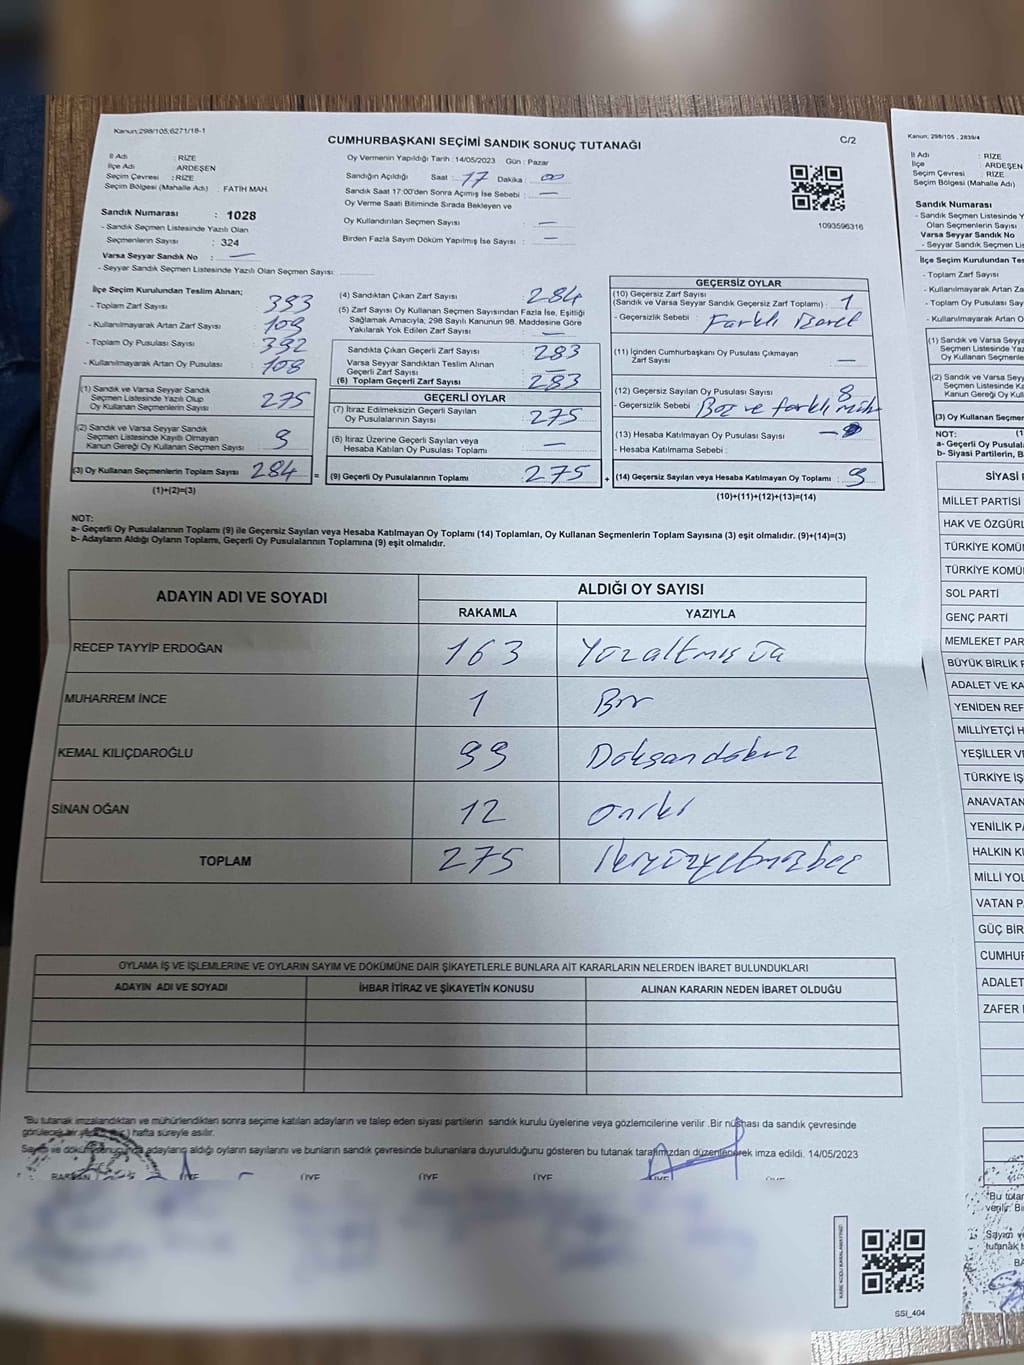 Kanun;298/105;6271/18-1
CUMHURBAŞKANI SEÇİMİ SANDIK SONUÇ TUTANAĞI
C/2
İl Adı : RİZE
İlçe Adı : ARDEŞEN
Seçim Çevresi : RİZE
Seçim Bölgesi (Mahalle Adı) : FATİH MAH.
Sandık Numarası : 1028
- Sandık Seçmen Listesinde Yazılı Olan
Seçmenlerin Sayısı : 324
Varsa Seyyar Sandık No : —
- Seyyar Sandık Seçmen Listesinde Yazılı Olan Seçmen Sayısı:
Oy Vermenin Yapıldığı Tarih : 14/05/2023 Gün : Pazar
Sandığın Açıldığı Saat : 17 Dakika : 00
Sandık Saat 17:00'den Sonra Açımış İse Sebebi : —
Oy Verme Saati Bitiminde Sırada Bekleyen ve
Oy Kullandırılan Seçmen Sayısı : —
Birden Fazla Sayım Döküm Yapılmış İse Sayısı : —
1093596316
İlçe Seçim Kurulundan Teslim Alınan;
- Toplam Zarf Sayısı : 393
- Kullanılmayarak Artan Zarf Sayısı : 109
- Toplam Oy Pusulası Sayısı : 392
- Kullanılmayarak Artan Oy Pusulası : 108
(1) Sandık ve Varsa Seyyar Sandık
Seçmen Listesinde Yazılı Olup
Oy Kullanan Seçmenlerin Sayısı : 275
(2) Sandık ve Varsa Seyyar Sandık
Seçmen Listesinde Kayıtlı Olmayan
Kanun Gereği Oy Kullanan Seçmen Sayısı : 9
(3) Oy Kullanan Seçmenlerin Toplam Sayısı : 284 =
(1)+(2)=(3)
(4) Sandıktan Çıkan Zarf Sayısı : 284
(5) Zarf Sayısı Oy Kullanan Seçmen Sayısından Fazla İse, Eşitliği
Sağlamak Amacıyla, 298 Sayılı Kanunun 98. Maddesine Göre
Yakılarak Yok Edilen Zarf Sayısı : —
Sandıkta Çıkan Geçerli Zarf Sayısı : 283
Varsa Seyyar Sandıktan Teslim Alınan
Geçerli Zarf Sayısı : —
(6) Toplam Geçerli Zarf Sayısı : 283
GEÇERLİ OYLAR
(7) İtiraz Edilmeksizin Geçerli Sayılan
Oy Pusulalarının Sayısı : 275
(8) İtiraz Üzerine Geçerli Sayılan veya
Hesaba Katılan Oy Pusulası Toplamı : —
(9) Geçerli Oy Pusulalarının Toplamı : 275 +
GEÇERSİZ OYLAR
(10) Geçersiz Zarf Sayısı
(Sandık ve Varsa Seyyar Sandık Geçersiz Zarf Toplamı) : 1
- Geçersizlik Sebebi : Farklı İşaret
(11) İçinden Cumhurbaşkanı Oy Pusulası Çıkmayan
Zarf Sayısı : —
(12) Geçersiz Sayılan Oy Pusulası Sayısı : 8
- Geçersizlik Sebebi : Boş ve farklı müh
(13) Hesaba Katılmayan Oy Pusulası Sayısı :
- Hesaba Katılmama Sebebi :
(14) Geçersiz Sayılan veya Hesaba Katılmayan Oy Toplamı : 9
(10)+(11)+(12)+(13)=(14)
NOT:
a- Geçerli Oy Pusulalarının Toplamı (9) ile Geçersiz Sayılan veya Hesaba Katılmayan Oy Toplamı (14) Toplamları, Oy Kullanan Seçmenlerin Toplam Sayısına (3) eşit olmalıdır. (9)+(14)=(3)
b- Adayların Aldığı Oyların Toplamı, Geçerli Oy Pusulalarının Toplamına (9) eşit olmalıdır.
ADAYIN ADI VE SOYADI
ALDIĞI OY SAYISI
RAKAMLA YAZIYLA
RECEP TAYYİP ERDOĞAN 163 Yüzaltmış üç
MUHARREM İNCE 1 Bir
KEMAL KILIÇDAROĞLU 99 Doksandokuz
SİNAN OĞAN 12 oniki
TOPLAM 275 İkiyüzyetmişbeş
OYLAMA İŞ VE İŞLEMLERİNE VE OYLARIN SAYIM VE DÖKÜMÜNE DAİR ŞİKAYETLERLE BUNLARA AİT KARARLARIN NELERDEN İBARET BULUNDUKLARI
ADAYIN ADI VE SOYADI İHBAR İTİRAZ VE ŞİKAYETİN KONUSU ALINAN KARARIN NEDEN İBARET OLDUĞU
"Bu tutanak imzalandıktan ve mühürlendikten sonra seçime katılan adayların ve talep eden siyasi partilerin sandık kurulu üyelerine veya gözlemcilerine verilir .Bir nüshası da sandık çevresinde
görülecek bir hafta süreyle asılır.
Sayım ve döküm sonucunda adayların aldığı oyların sayılarını ve bunların sandık çevresinde bulunanlara duyurulduğunu gösteren bu tutanak tarafımızdan düzenlenerek imza edildi. 14/05/2023
BAŞKAN ÜYE ÜYE ÜYE ÜYE ÜYE
SSI_404
Kanun; 298/105 , 2839/4
İl Adı : RİZE
İlçe : ARDEŞEN
Seçim Çevresi : RİZE
Seçim Bölgesi (Mahalle Adı)
Sandık Numarası
- Sandık Seçmen Listesinde
Olan Seçmenlerin Sayısı
Varsa Seyyar Sandık No
- Seyyar Sandık Seçmen Lis
İlçe Seçim Kurulundan Tes
- Toplam Zarf Sayısı
- Kullanılmayarak Artan Z
- Toplam Oy Pusulası Say
- Kullanılmayarak Artan O
(1) Sandık ve Varsa Seyya
Seçmen Listesinde Yaz
Oy Kullanan Seçmenleri
(2) Sandık ve Varsa Seyya
Seçmen Listesinde Kay
Kanun Gereği Oy Kulla
(3) Oy Kullanan Seçmenle
NOT: (1
a- Geçerli Oy Pusulal
b- Siyasi Partilerin, B
SİYASİ
MİLLET PARTİSİ
HAK VE ÖZGÜRL
TÜRKİYE KOMÜN
TÜRKİYE KOMÜ
SOL PARTİ
GENÇ PARTİ
MEMLEKET PAR
BÜYÜK BİRLİK P
ADALET VE KA
YENİDEN REF
MİLLİYETÇİ H
YEŞİLLER VE
TÜRKİYE İŞ
ANAVATAN
YENİLİK PA
HALKIN KU
MİLLİ YOL
VATAN P
GÜÇ BİR
CUMHUR
ADALET
ZAFER
"Bu tutan
verilir. Bi
Sayım ve
tutanak t
BA